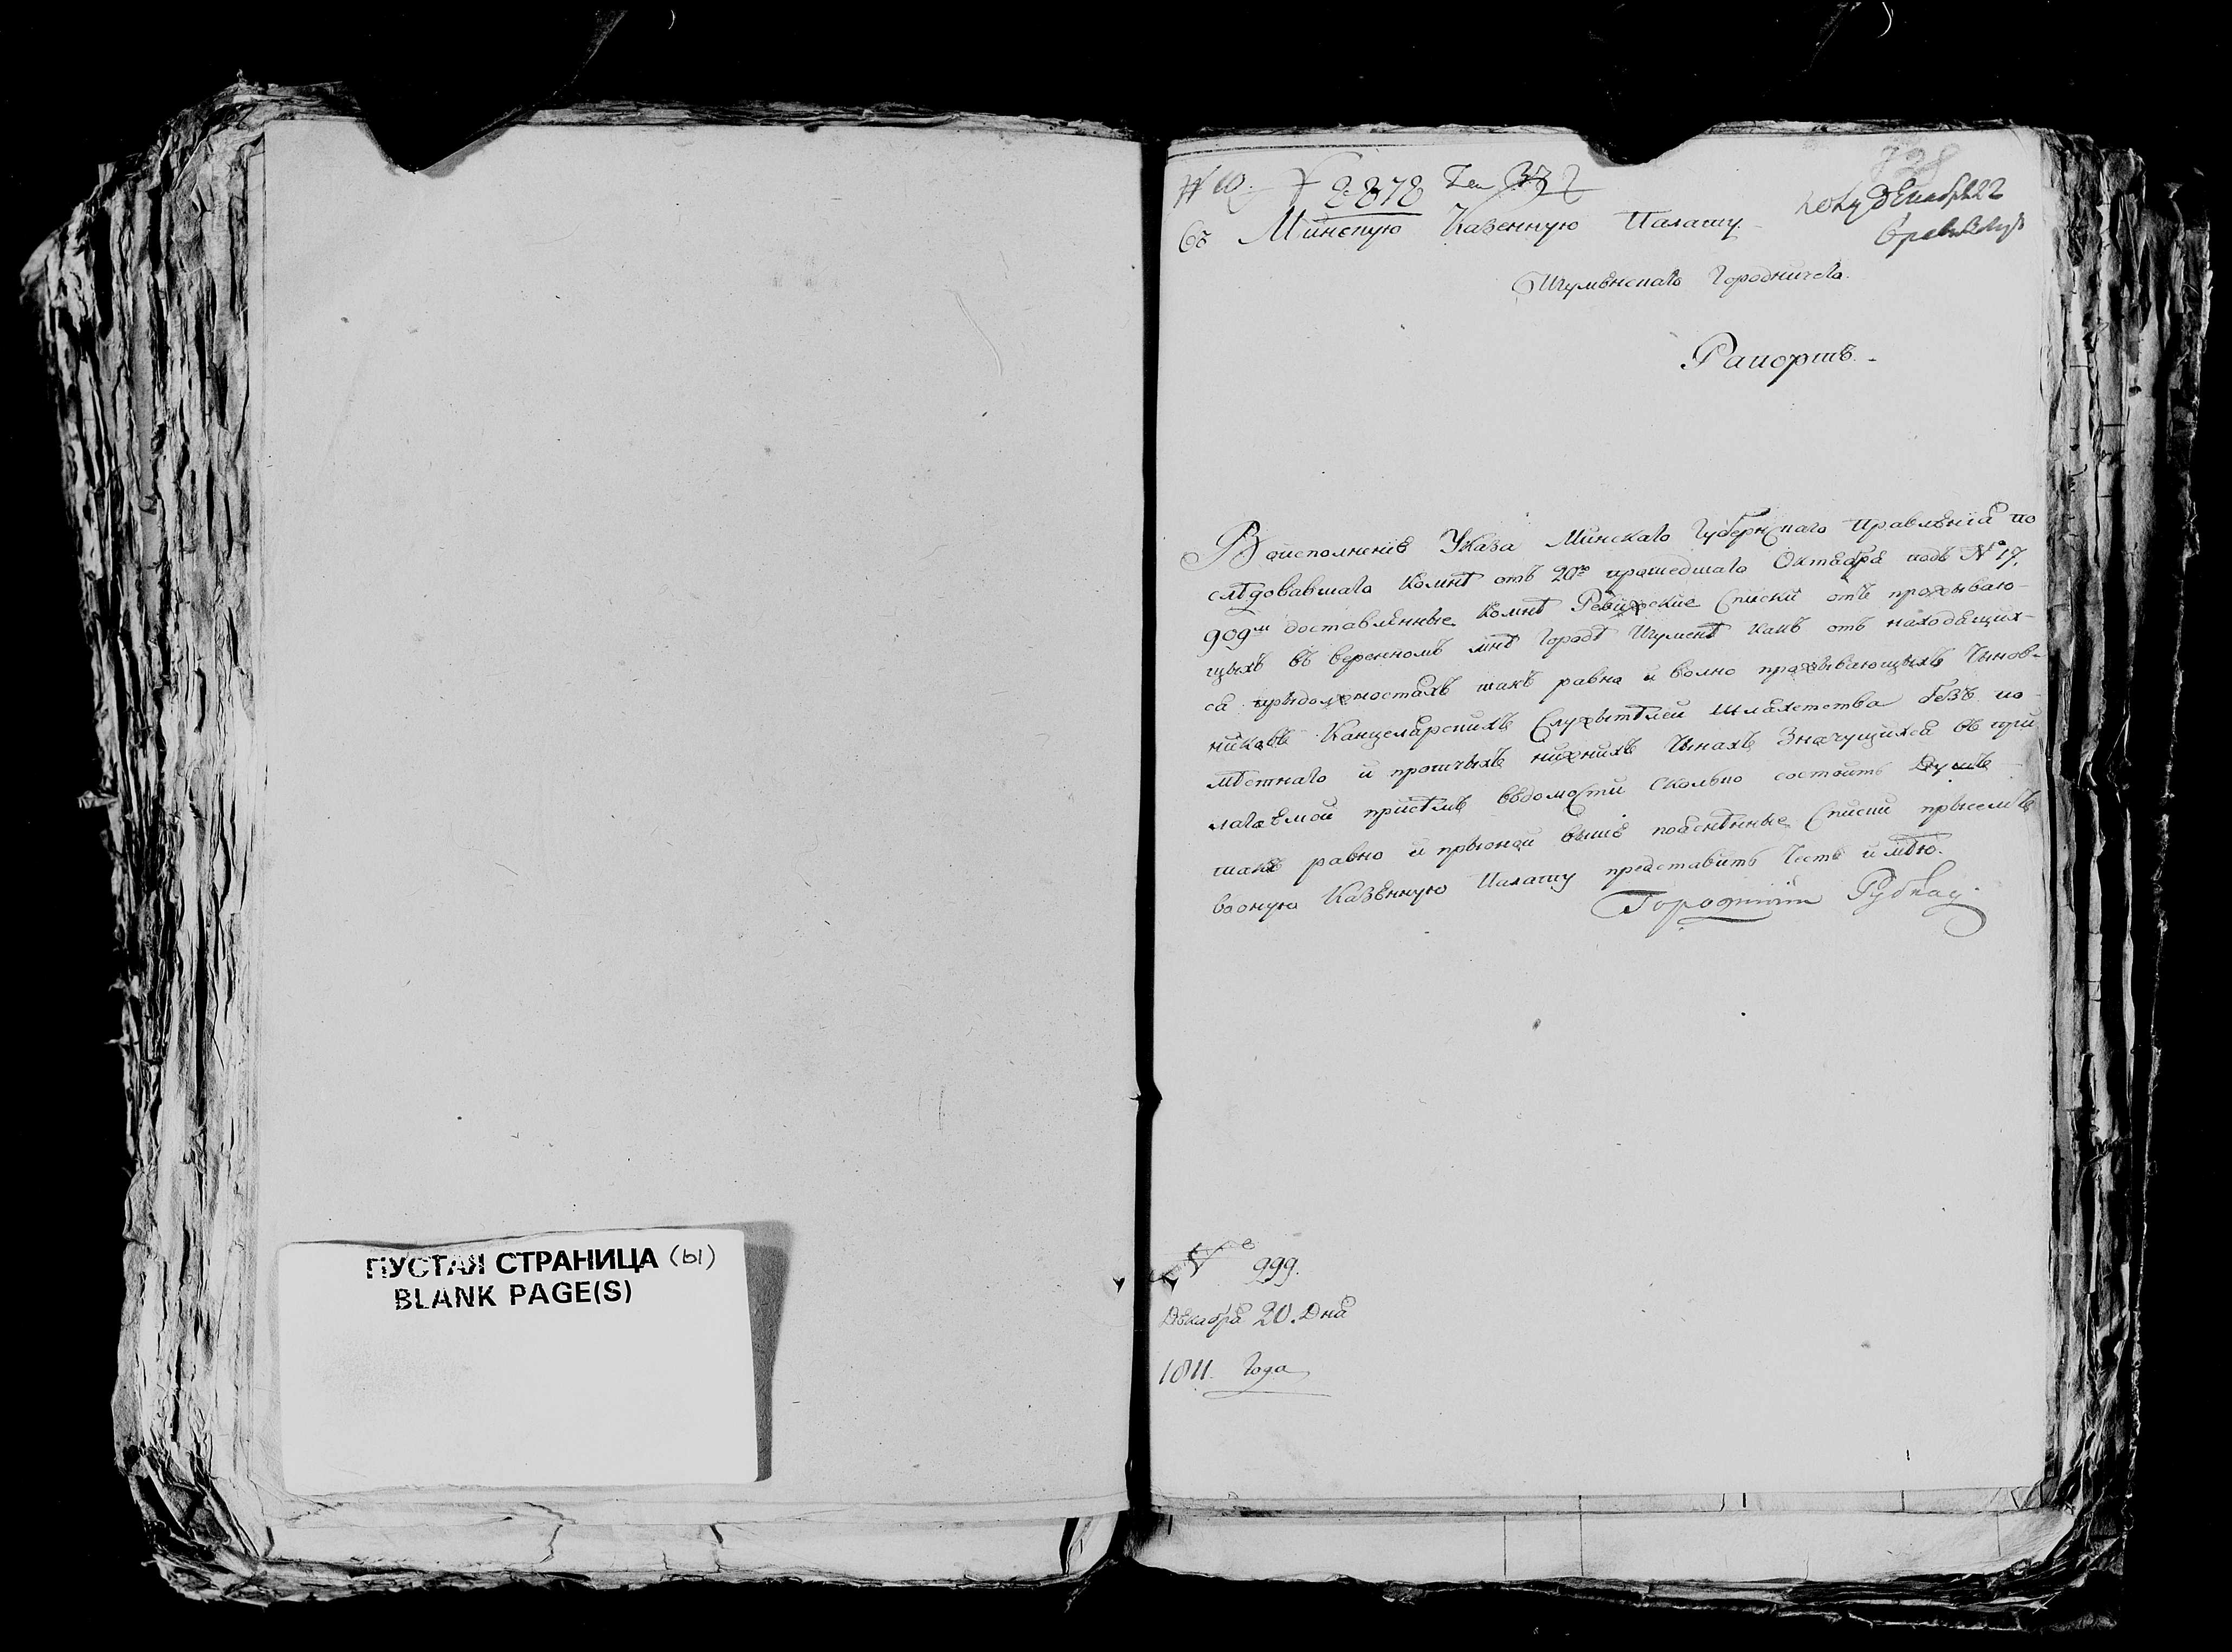 ПУСТАЯ СТРАНИЦА (ы)
BLANK PAGE(S)
2878
Въ Минскую Казенную Палату
Игуменскаго Городничего.
Рапортъ.
Воисполнение Указа Минскаго Губернскаго правления по
следовавшаго комнѣ отъ 20го прошедшаго Октября подъ № 17,
909м доставленные комнѣ Ревижские Списки отъ прожываю-
щыхъ въ веренномъ мнѣ Городѣ Игуменѣ какъ отъ находящих-
ся прыдолжностяхъ такъ равно и волно прожывающыхъ Чынов-
никовъ Канцелярскихъ Служытелей шляхетства безъ по-
мѣстнаго и протчыхъ нижнихъ Чынахъ Значущихся въ при
лагаемой присѣмъ вѣдомости сколько состоитъ Душъ
такъ равно и прыоной выше поясненные Списки прысемъ
вооную Казенную Палату представить Честь имѣю.
Городничий
№ 999.
Декабря 20. Дня
1811. Года